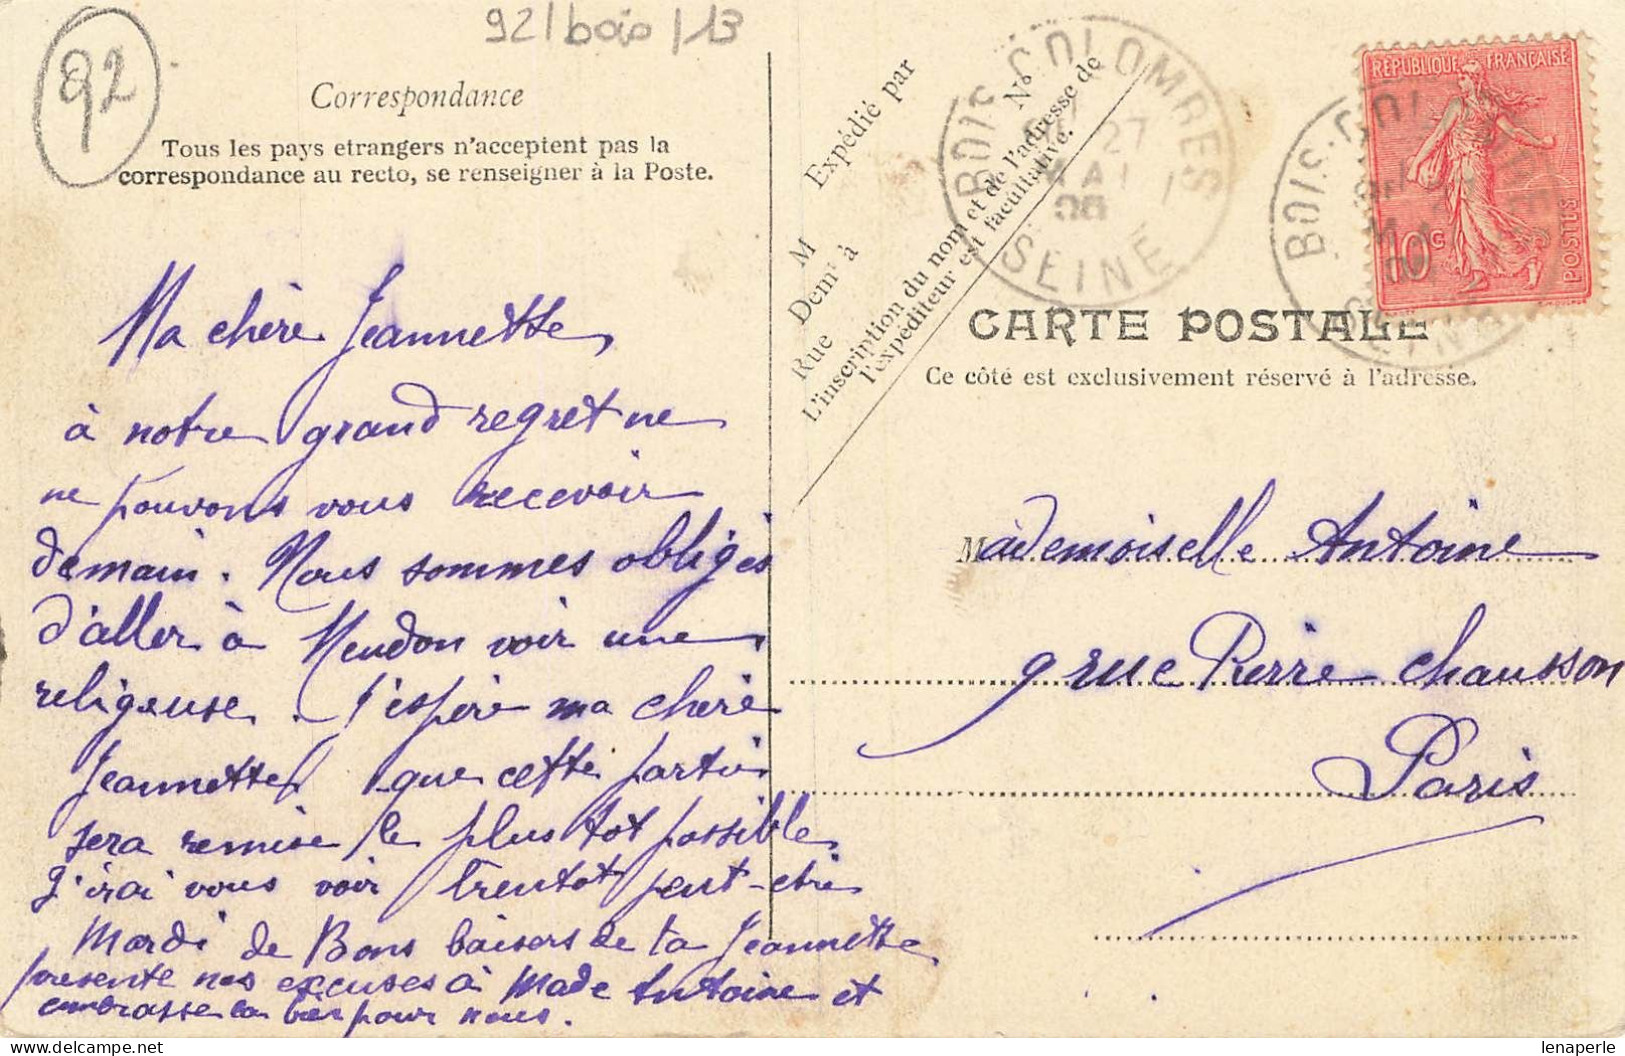 92
92/bois/13
Correspondance
Tous les pays etrangers n'acceptent pas la
correspondance au recto, se renseigner à la Poste.
Ma chère Jeannette,
à notre grand regret ne
ne pouvons vous recevoir
demain. Nous sommes obligés
d'aller à Meudon voir une
religieuse. J'espère ma chère
Jeannette que cette partie
sera remise le plus tot possible.
J'irai vous voir bientot peut-être
Mardi de Bons baisers de ta Jeannette
presente nos excuses à Made Antoine et
embrasse la bien pour nous.
Expédié par
M
Demt à
Rue
No
L'inscription du nom et de l'adresse de
l'expéditeur est facultative.
BOIS-COLOMBES
27
MAI
06
SEINE
RÉPUBLIQUE FRANÇAISE
10c
POSTES
BOIS-COLOMBES
SEINE
CARTE POSTALE
Ce côté est exclusivement réservé à l'adresse.
Mademoiselle Antoine
9 rue Pierre Chausson
Paris
lenaperle